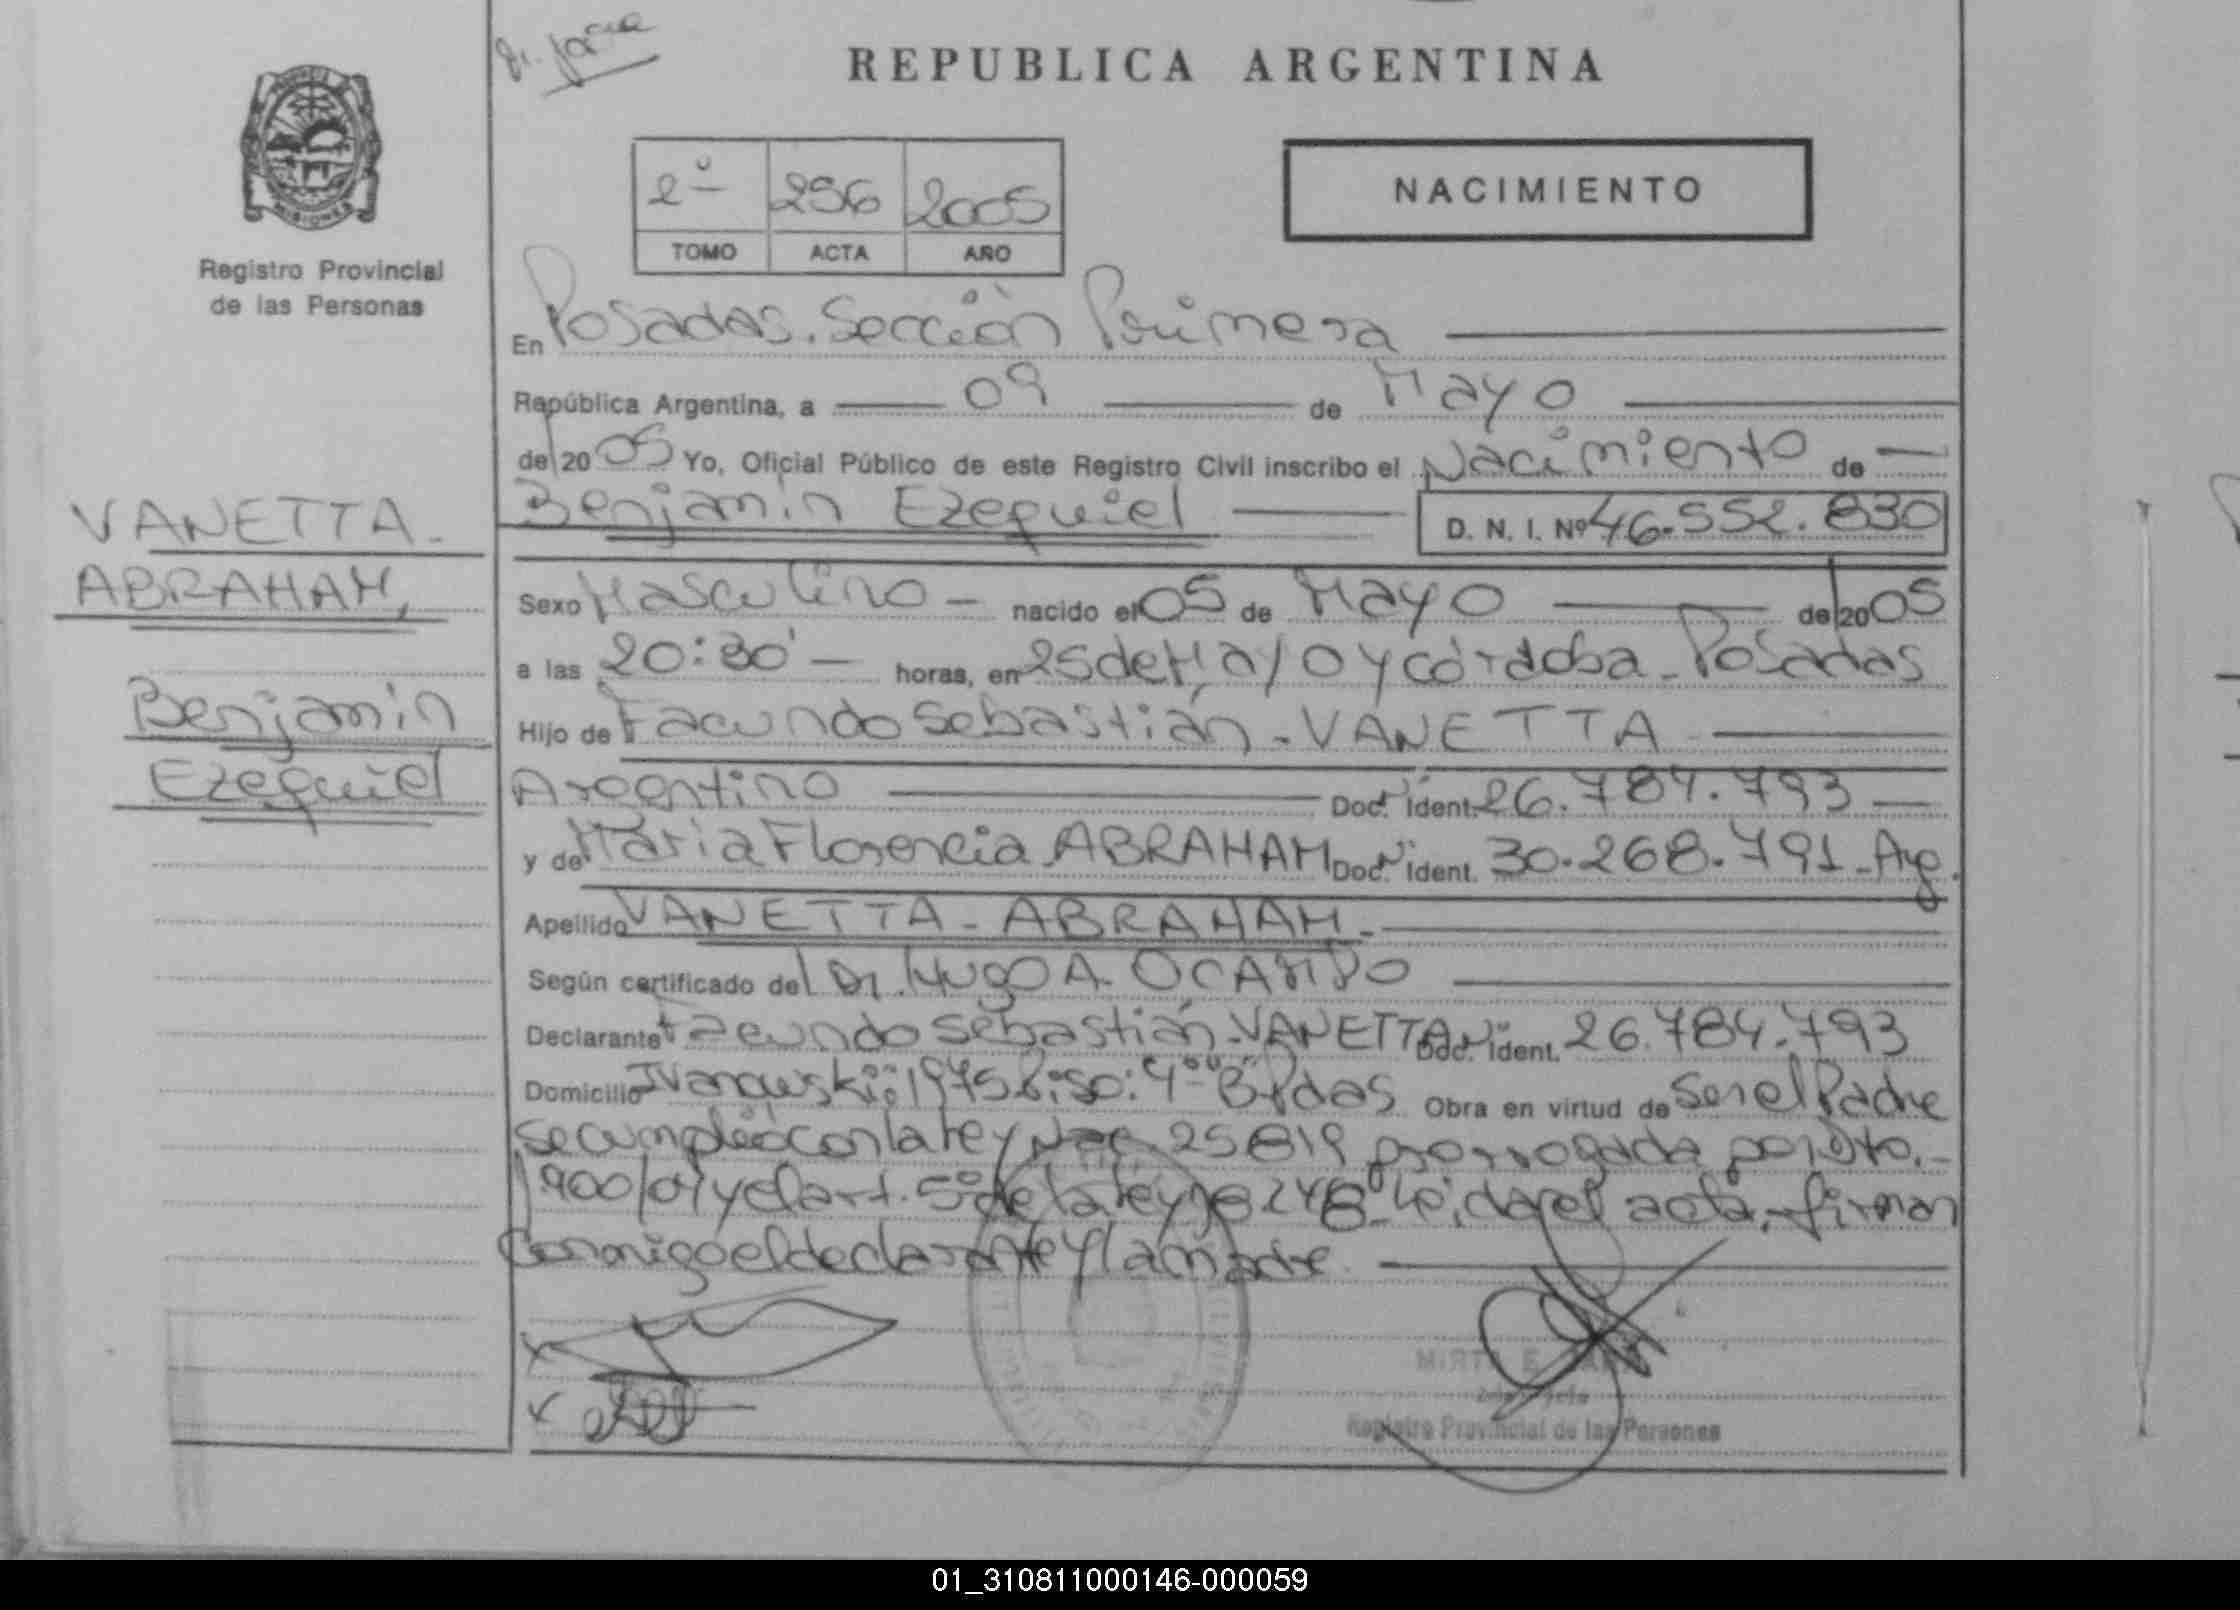 REPUBLICA ARGENTINA
MISIONES
Registro Provincial
de las Personas
2º 256 2005
TOMO ACTA AÑO
NACIMIENTO
En Posadas. Sección Primera
República Argentina, a 09 de Mayo
de 2005 Yo, Oficial Público de este Registro Civil inscribo el Nacimiento de
Benjamin Ezequiel D. N. I. Nº 46.552.830
VANETTA-
ABRAHAM,
Benjamin
Ezequiel
Sexo Masculino - nacido el 05 de Mayo de 2005
a las 20:30' - horas, en 25 de Mayo y Córdoba - Posadas
Hijo de Facundo Sebastián - VANETTA
Argentino Doc. Ident. 26.784.793
y de Maria Florencia ABRAHAM Doc. Ident. 30.268.791 - Arg.
Apellido VANETTA - ABRAHAM.-
Según certificado del Dr. Hugo A. OCAMPO
Declarante Facundo Sebastián - VANETTA Doc. Ident. 26.784.793
Domicilio 1975 Piso: 4º "B" Pdas Obra en virtud de Ser el Padre
Se cumplió con la Ley 25819 prorrogada por Dto.-
1.900/04 y el art. 5º de la Ley 18.248 - Leida el acta, firman
Conmigo el declarante y la madre.
MIRTA E.
Registro Provincial de las Personas
01_310811000146-000059